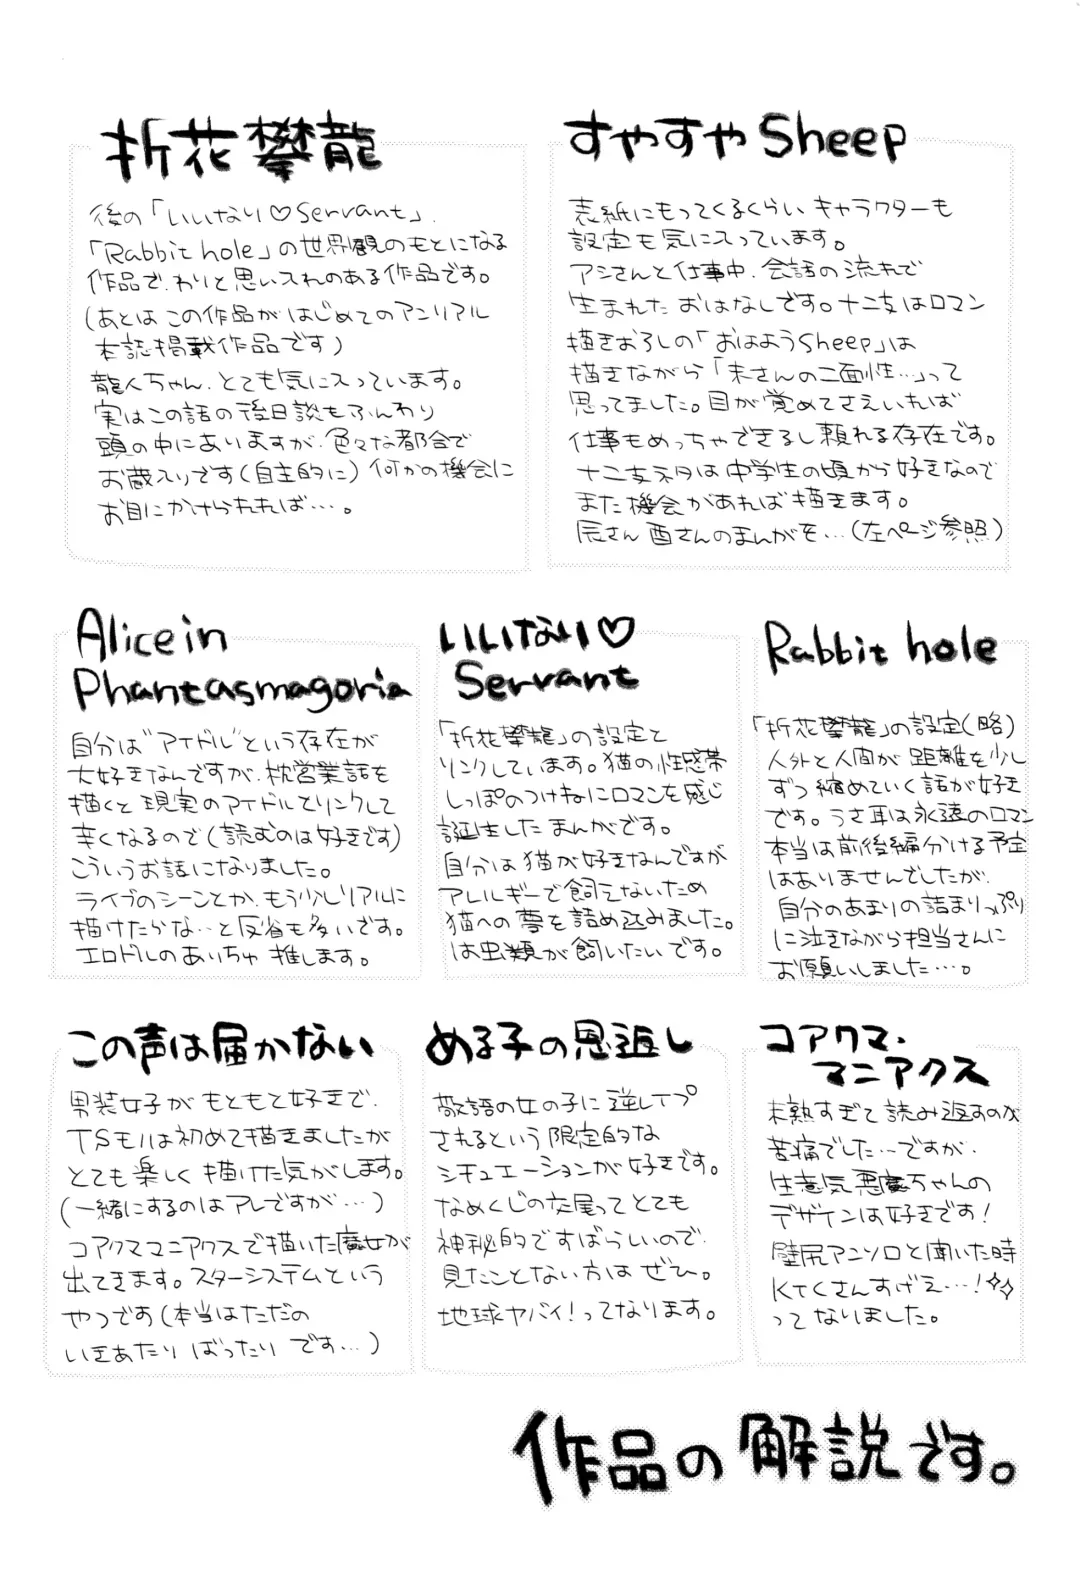 折花攀龍
後の「いいなり♡Servant」、
「Rabbit hole」の世界観のもとになる
作品で、わりと思い入れのある作品です。
(あとは この作品が はじめてのアンリアル
本誌掲載作品です)
龍人ちゃん、とても気に入っています。
実はこの話の後日談もふんわり
頭の中にありますが、色々な都合で
お蔵入りです(自主的に) 何かの機会に
お目にかけられれば…。
すやすやSheep
表紙にもってくるくらい キャラクターも
設定も気に入っています。
アシさんと仕事中、会話の流れで
生まれた おはなしです。十二支はロマン
描きおろしの「おはようSheep」は
描きながら「未さんの二面性…」って
思ってました。目が覚めてさえいれば
仕事もめっちゃできるし頼れる存在です。
十二支ネタは中学生の頃から好きなので
また機会があれば描きます。
辰さん 酉さんのまんがを…(左ページ参照)
Alice in
Phantasmagoria
自分は"アイドル"という存在が
大好きなんですが、枕営業話を
描くと現実のアイドルとリンクして
辛くなるので(読むのは好きです)
こういうお話になりました。
ライブのシーンとか、もう少しリアルに
描けたかな…と反省も多いです。
エロドルのあいちゃ推します。
いいなり♡
Servant
「折花攀龍」の設定と
リンクしています。猫の性感帯
しっぽのつけねにロマンを感じ
誕生したまんがです。
自分は猫が好きなんですが
アレルギーで飼えないため
猫への夢を詰め込みました。
は虫類が飼いたいです。
Rabbit hole
「折花攀龍」の設定(略)
人外と人間が距離を少し
ずつ縮めていく話が好き
です。うさ耳は永遠のロマン
本当は前後編分ける予定
はありませんでしたが、
自分のあまりの詰まりっぷり
に泣きながら担当さんに
お願いしました…。
この声は届かない
男装女子がもともと好きで、
TSモノは初めて描きましたが
とても楽しく描けた気がします。
(一緒にするのはアレですが…)
コアクマ マニアクスで描いた魔女が
出てきます。スターシステムという
やつです(本当はただの
いきあたりばったりです…)
める子の恩返し
敬語の女の子に逆レイプ
されるという限定的な
シチュエーションが好きです。
なめくじの交尾ってとても
神秘的ですばらしいので、
見たことない方はぜひ。
地球ヤバイ!ってなります。
コアクマ・
マニアクス
未熟すぎて読み返すのが
苦痛でした…ですが、
生意気悪魔ちゃんの
デザインは好きです!
壁尻アンソロと聞いた時
KTCさんすげえ…!✧✧
ってなりました。
作品の解説です。